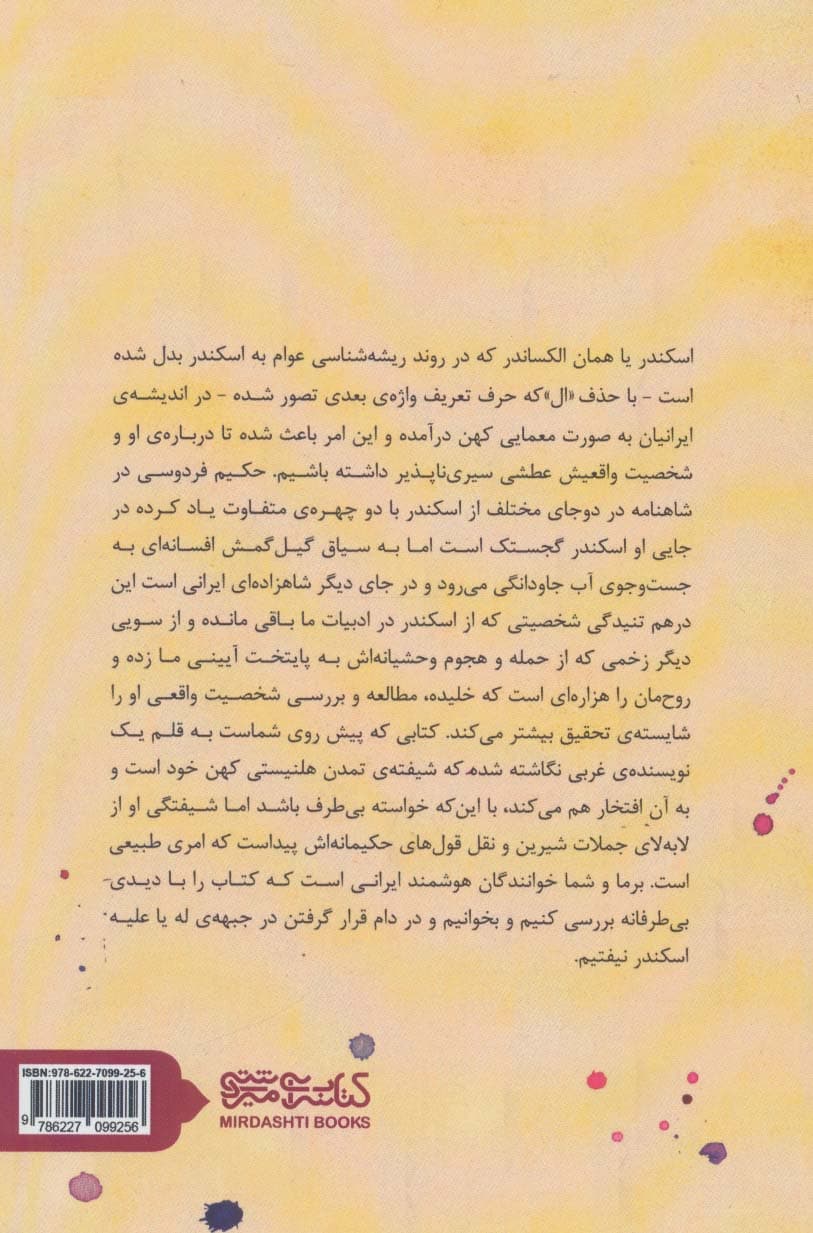 اسکندر یا همان الکساندر که در روند ریشه‌شناسی عوام به اسکندر بدل شده
است - با حذف «ال»که حرف تعریف واژه‌ی بعدی تصور شده - در اندیشه‌ی
ایرانیان به صورت معمایی کهن درآمده و این امر باعث شده تا درباره‌ی او و
شخصیت واقعیش عطشی سیری‌ناپذیر داشته باشیم. حکیم فردوسی در
شاهنامه در دوجای مختلف از اسکندر با دو چهره‌ی متفاوت یاد کرده در
جایی او اسکندر گجستک است اما به سیاق گیل‌گمش افسانه‌ای به
جست‌وجوی آب جاودانگی می‌رود و در جای دیگر شاهزاده‌ای ایرانی است این
درهم تنیدگی شخصیتی که از اسکندر در ادبیات ما باقی مانده و از سویی
دیگر زخمی که از حمله و هجوم وحشیانه‌اش به پایتخت آیینی ما زده و
روح‌مان را هزاره‌ای است که خلیده، مطالعه و بررسی شخصیت واقعی او را
شایسته‌ی تحقیق بیشتر می‌کند. کتابی که پیش روی شماست به قلم یک
نویسنده‌ی غربی نگاشته شده که شیفته‌ی تمدن هلنیستی کهن خود است و
به آن افتخار هم می‌کند، با این‌که خواسته بی‌طرف باشد اما شیفتگی او از
لابه‌لای جملات شیرین و نقل قول‌های حکیمانه‌اش پیداست که امری طبیعی
است. برما و شما خوانندگان هوشمند ایرانی است که کتاب را با دیدی
بی‌طرفانه بررسی کنیم و بخوانیم و در دام قرار گرفتن در جبهه‌ی له یا علیه
اسکندر نیفتیم.
ISBN:978-622-7099-25-6
9 786227 099256
کتابسرای میردشتی
MIRDASHTI BOOKS